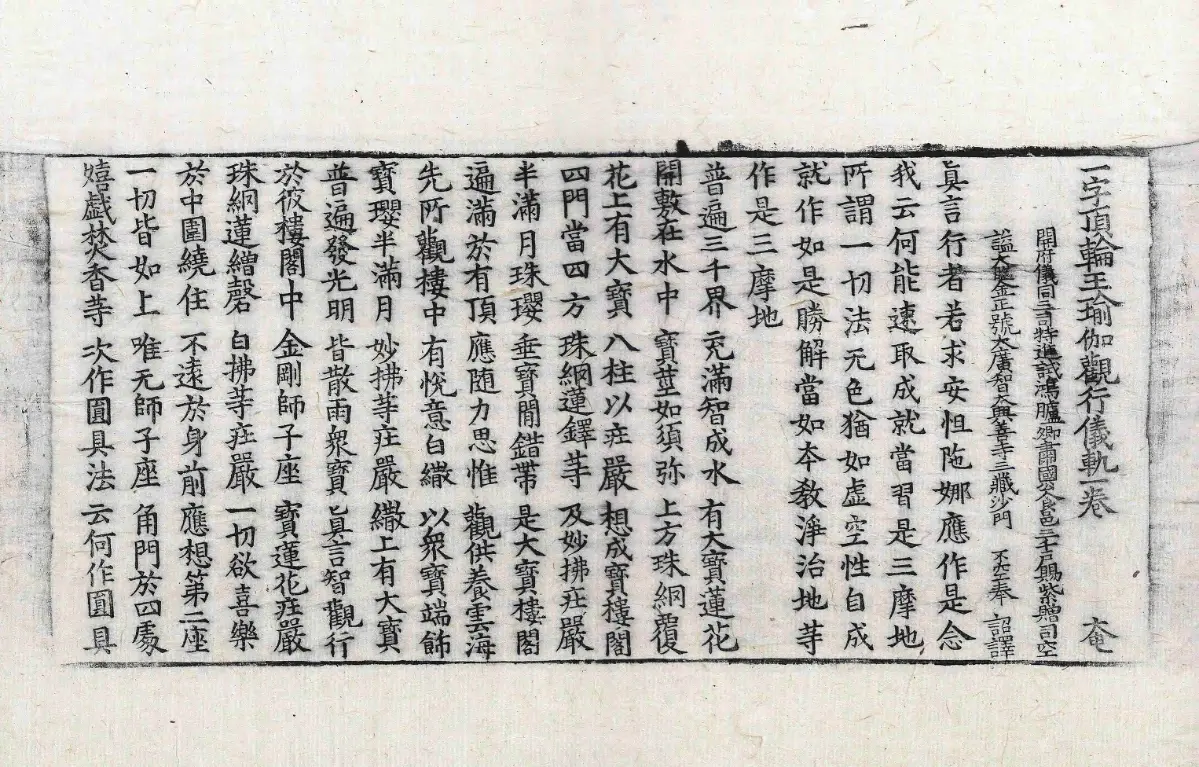 一字頂輪王瑜伽觀行儀軌一卷 奄
開府儀同三司特進試鴻臚卿肅國公食邑三千戶賜紫贈司空
謚大鑒正號大廣智大興善寺三藏沙門 不空奉 詔譯
真言行者若求安怛陁娜應作是念
我云何能速取成就當習是三摩地
所謂一切法无色猶如虛空性自成
就作如是勝解當如本教淨治地等
作是三摩地
普遍三千界 充滿智成水 有大寶蓮花
開敷在水中 寶莖如須弥 上方珠網覆
花上有大寶 八柱以莊嚴 想成寶樓閣
四門當四方 珠網蓮鐸等 及妙拂莊嚴
半滿月珠瓔 垂寶間錯帶 是大寶樓閣
遍滿於有頂 應随力思惟 觀供養雲海
先所觀樓中 有悅意白繖 以衆寶端飾
寶瓔半滿月 妙拂等莊嚴 繖上有大寶
普遍發光明 皆散雨衆寶 已真言智觀行
於彼樓閣中 金剛師子座 寶蓮花莊嚴
珠網蓮繒磬 白拂等莊嚴 一切欲喜樂
於中圍繞住 不遠於身前 應想第二座
一切皆如上 唯无師子座 角門於四處
嬉戲焚香等 次作圓具法 云何作圓具